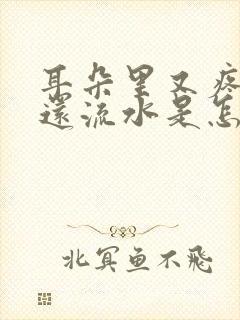 耳朵里又疼
還流水是怎
北冥鱼不飛